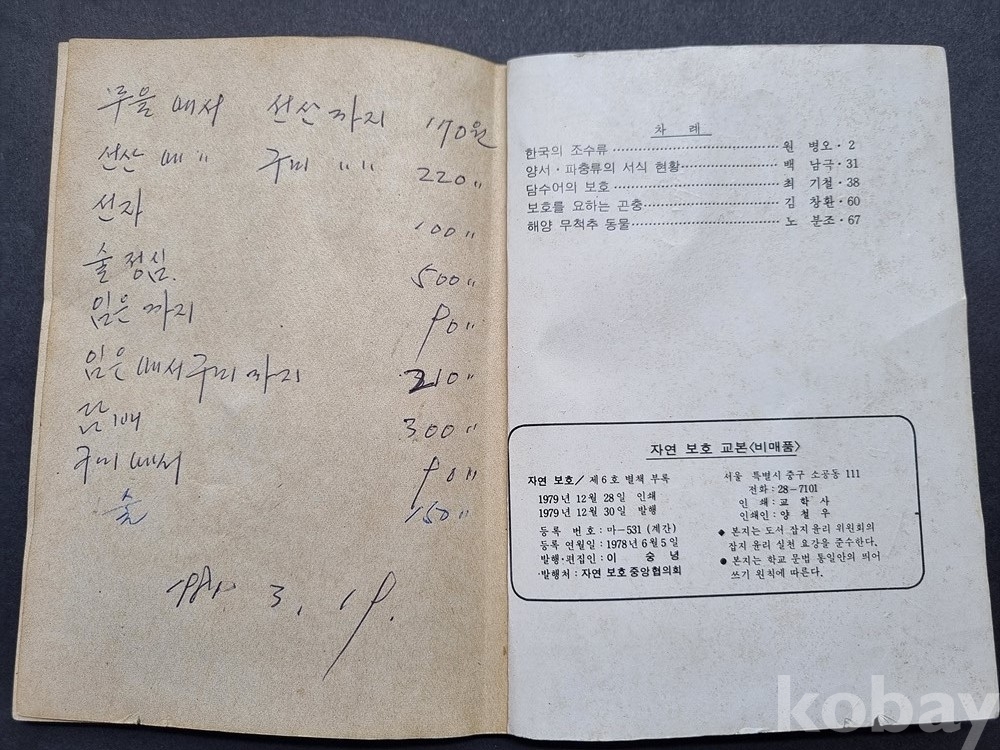 무을 매서 선산까지 170원
선산 매 〃 구미 〃 〃 220 〃
선자 100 〃
술 점심. 500 〃
임은까지 90 〃
임은 매서 구미까지 210 〃
담배 300 〃
구미 매서 90 〃
술 150 〃
3. 19.
차 례
한국의 조수류 원 병오·2
양서·파충류의 서식 현황 백 남극·31
담수어의 보호 최 기철·38
보호를 요하는 곤충 김 창환·60
해양 무척추 동물 노 분조·67
자연 보호 교본<비매품>
자연 보호/제6호 별책 부록
1979년 12월 28일 인쇄
1979년 12월 30일 발행
등록 번호:마-531 (계간)
등록 연월일:1978년 6월 5일
발행·편집인:이 숭 녕
발행처:자연 보호 중앙협의회
서울 특별시 중구 소공동 111
전화:28-7101
인 쇄:교 학 사
인쇄인:양 철 우
◆ 본지는 도서 잡지 윤리 위원회의
잡지 윤리 실천 요강을 준수한다.
● 본지는 학교 문법 통일안의 띄어
쓰기 원칙에 따른다.
kobay